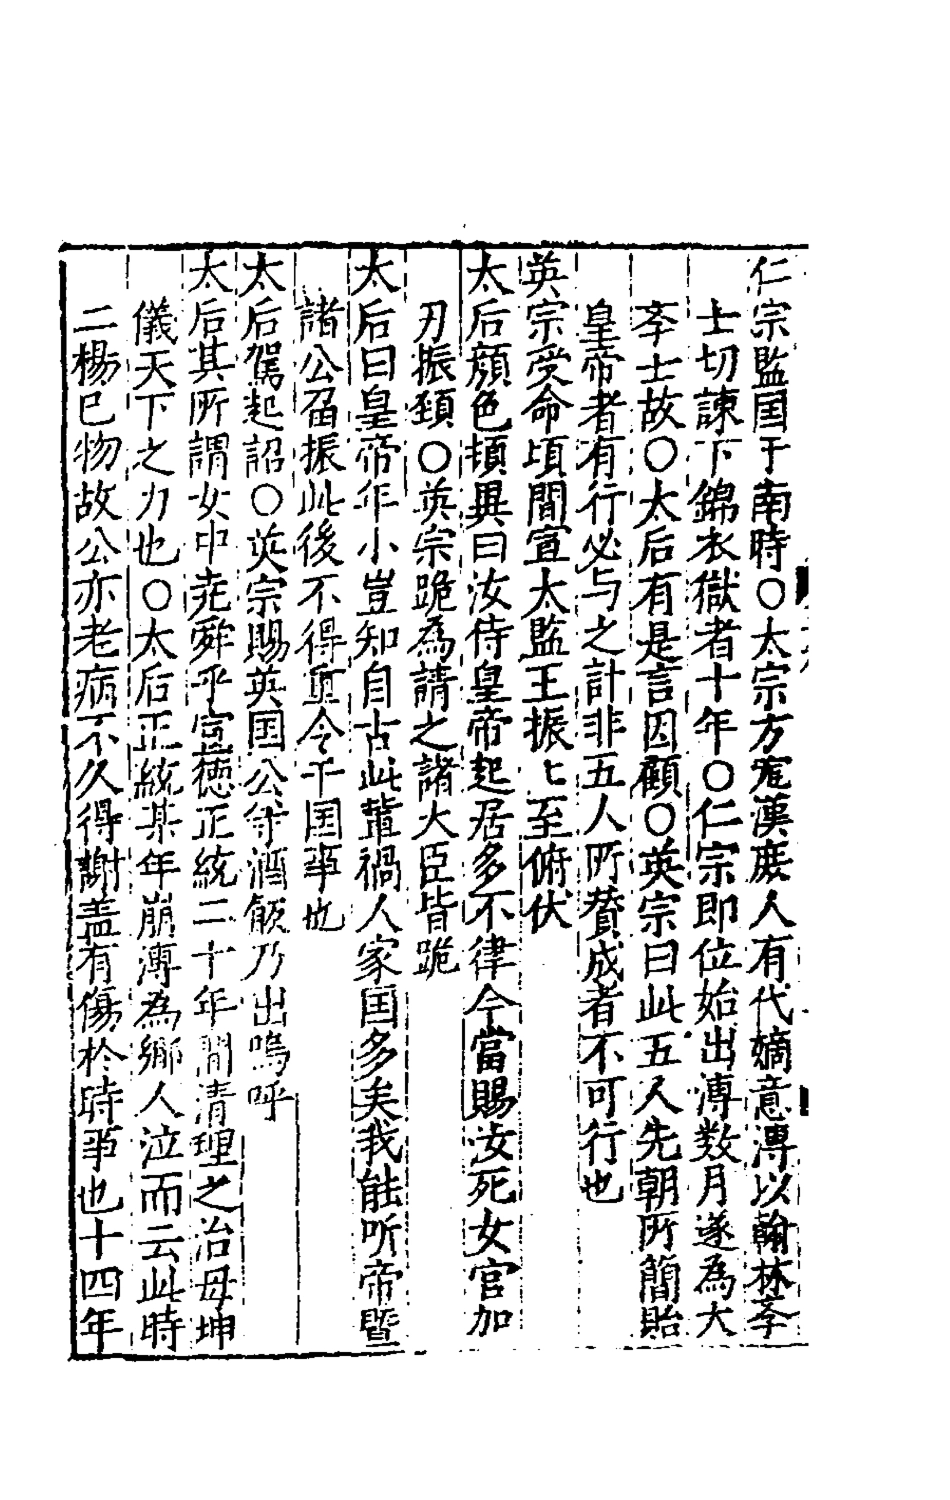 仁宗監国于南時○太宗方寃漢庶人有代嫡意溥以翰林斈
士切諌下錦衣獄者十年○仁宗即位始出溥数月遂為大
斈士故○太后有是言因顧○英宗曰此五人先朝所簡貽
皇帝者有行必与之計非五人所賛成者不可行也
英宗受命頃間宣太監王振㠯至俯伏
太后顔色頓異曰汝侍皇帝起居多不律今當賜汝死女官加
刃振頚○英宗跪為請之諸大臣皆跪
太后曰皇帝年小豈知自古此輩禍人家国多矣我能听帝曁
諸公畱振此後不得重令干国事也
太后駕起詔○英宗賜英国公等酒飯乃出嗚呼
太后其所謂女中尭舜乎宣徳正統二十年間清理之治母坤
儀天下之力也○太后正統某年崩溥為鄉人泣而云此時
二楊已物故公亦老病不久得謝盖有傷於時事也十四年